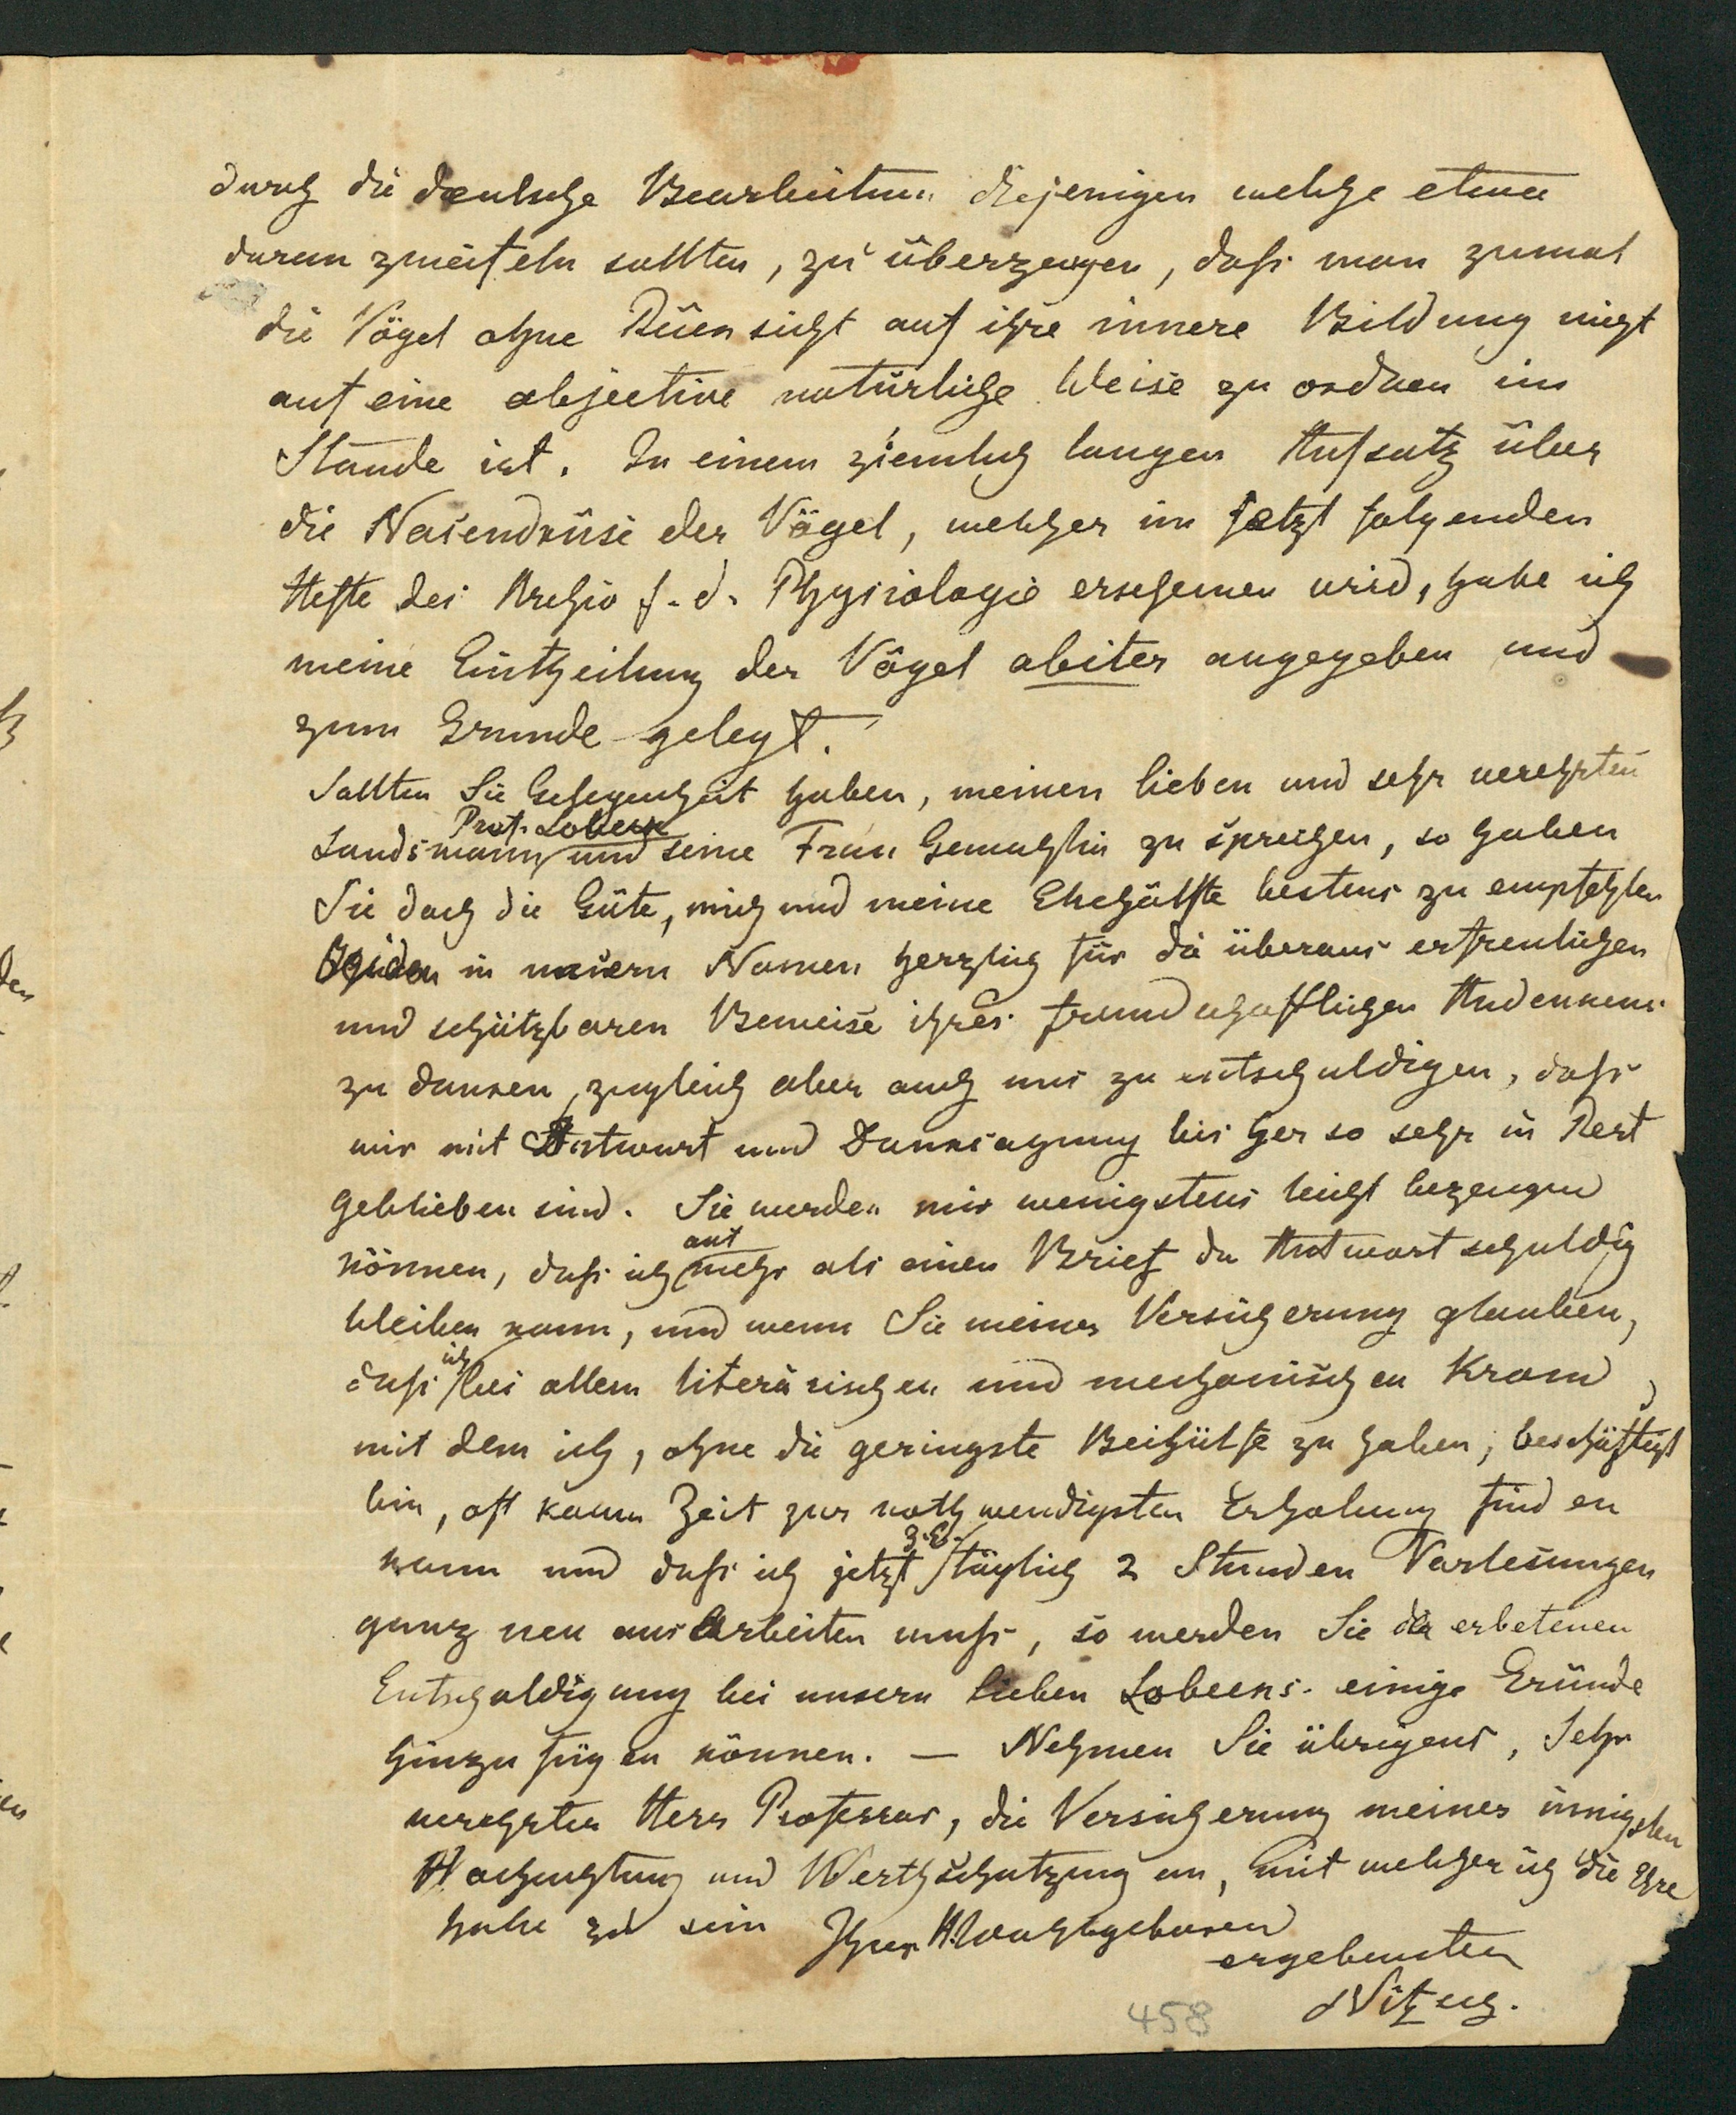 durch die deutsche Bearbeitung diejenigen welche etwa
daran zweifeln sollten, zu überzeugen, daß man zumal
die Vögel ohne Rücksicht auf ihre innere Bildung nicht
auf eine objective natürliche Weise zu ordnen im
Stande ist. In einem ziemlich langen Aufsatz über
die Nasendrüse der Vögel, welcher im jetzt folgenden
Hefte des Archiv f. d. Physiologie erscheinen wird, habe ich
meine Eintheilung der Vögel obiter angegeben und
zum Grunde gelegt.
Sollten Sie Gelegenheit haben, meinen lieben und sehr verehrten
Landsmann Prof. Lobeck und seine Frau Gemahlin zu sprechen, so haben
Sie doch die Güte, mich und meine Ehehälfte bestens zu empfehlen
Beiden in unserm Namen herzlich für die überaus erfreulichen
und schätzbaren Beweise ihres freundschaftlichen Andenkens
zu danken, zugleich aber auch uns zu entschuldigen, daß
wir mit Antwort und Danksagung bisher so sehr in Rest
geblieben sind. Sie werden mir wenigstens leicht bezeugen
können, daß ich auf mehr als einen Brief die Antwort schuldig
bleiben kann, und wenn Sie meiner Versicherung glauben,
daß ich bei allem literärischen und mechanischen Kram,
mit dem ich, ohne die geringste Beihülfe zu haben, beschäftigt
bin, oft kaum Zeit zur nothwendigsten Erholung finden
kann und daß ich jetzt z. E. täglich 2 Stunden Vorlesungen
ganz neu ausarbeiten muß, so werden Sie der erbetenen
Entschuldigung bei unsern lieben Lobecks einige Gründe
hinzufügen können. — Nehmen Sie übrigens, Sehr
verehrter Herr Professor, die Versicherung meiner innigsten
Hochachtung und Werthschätzung an, mit welcher ich die Ehre
habe zu sein Ihrer H. Wohlgeboren
ergebenster
Nitzsch.
458